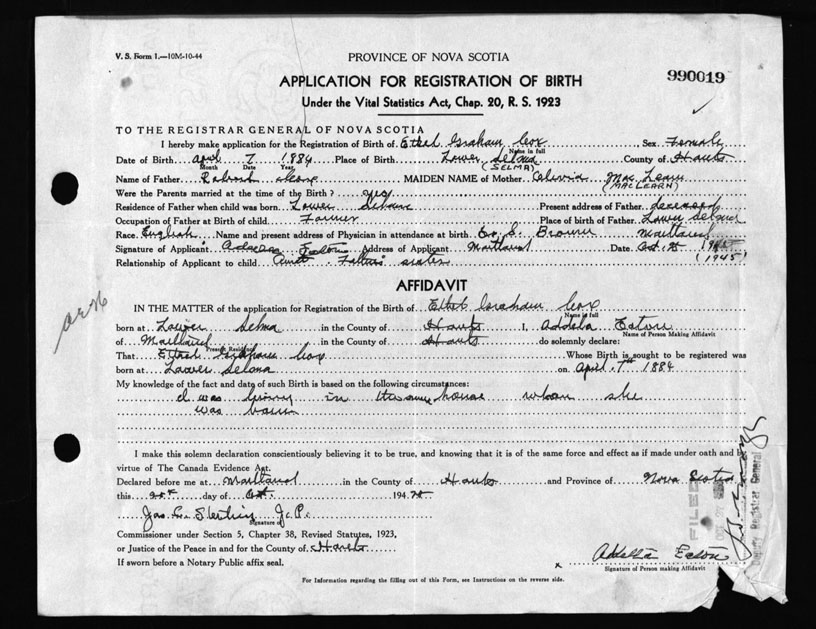 V. S. Form 1.—10M-10-44
PROVINCE OF NOVA SCOTIA
990019
APPLICATION FOR REGISTRATION OF BIRTH
Under the Vital Statistics Act, Chap. 20, R. S. 1923
TO THE REGISTRAR GENERAL OF NOVA SCOTIA
I hereby make application for the Registration of Birth of Ethel Graham Cox Sex Female
Name in full
Date of Birth April 7 1884 Place of Birth Lower Selma County of Hants
Month Date Year (SELMA)
Name of Father Robert Cox MAIDEN NAME of Mother Olivia Mac Learn
(MACLEARN)
Were the Parents married at the time of the Birth? yes
Residence of Father when child was born Lower Selma Present address of Father deceased
Occupation of Father at Birth of child Farmer Place of birth of Father Lower Selma
Race English Name and present address of Physician in attendance at birth Brown Maitland
Signature of Applicant Addella Eaton Address of Applicant Maitland Date Oct. 25 1945
(1945)
Relationship of Applicant to child Aunt Father's sister
AFFIDAVIT
IN THE MATTER of the application for Registration of the Birth of Ethel Graham Cox
Name in full
born at Lower Selma in the County of Hants I, Addella Eaton
Name of Person Making Affidavit
of Maitland in the County of Hants do solemnly declare:
Present Residence
That Ethel Graham Cox Whose Birth is sought to be registered was
born at Lower Selma on April 7th 1884
My knowledge of the fact and date of such Birth is based on the following circumstances:
I was living in the same house when she
was born
I make this solemn declaration conscientiously believing it to be true, and knowing that it is of the same force and effect as if made under oath and by
virtue of The Canada Evidence Act.
Declared before me at Maitland in the County of Hants and Province of Nova Scotia
this 25th day of Oct. 1945
Jas. Sterling J.P.
Signature of
Commissioner under Section 5, Chapter 38, Revised Statutes, 1923,
or Justice of the Peace in and for the County of Hants
If sworn before a Notary Public affix seal.
x Addella Eaton
Signature of Person making Affidavit
For Information regarding the filling out of this Form, see Instructions on the reverse side.
FILED
Deputy Registrar General